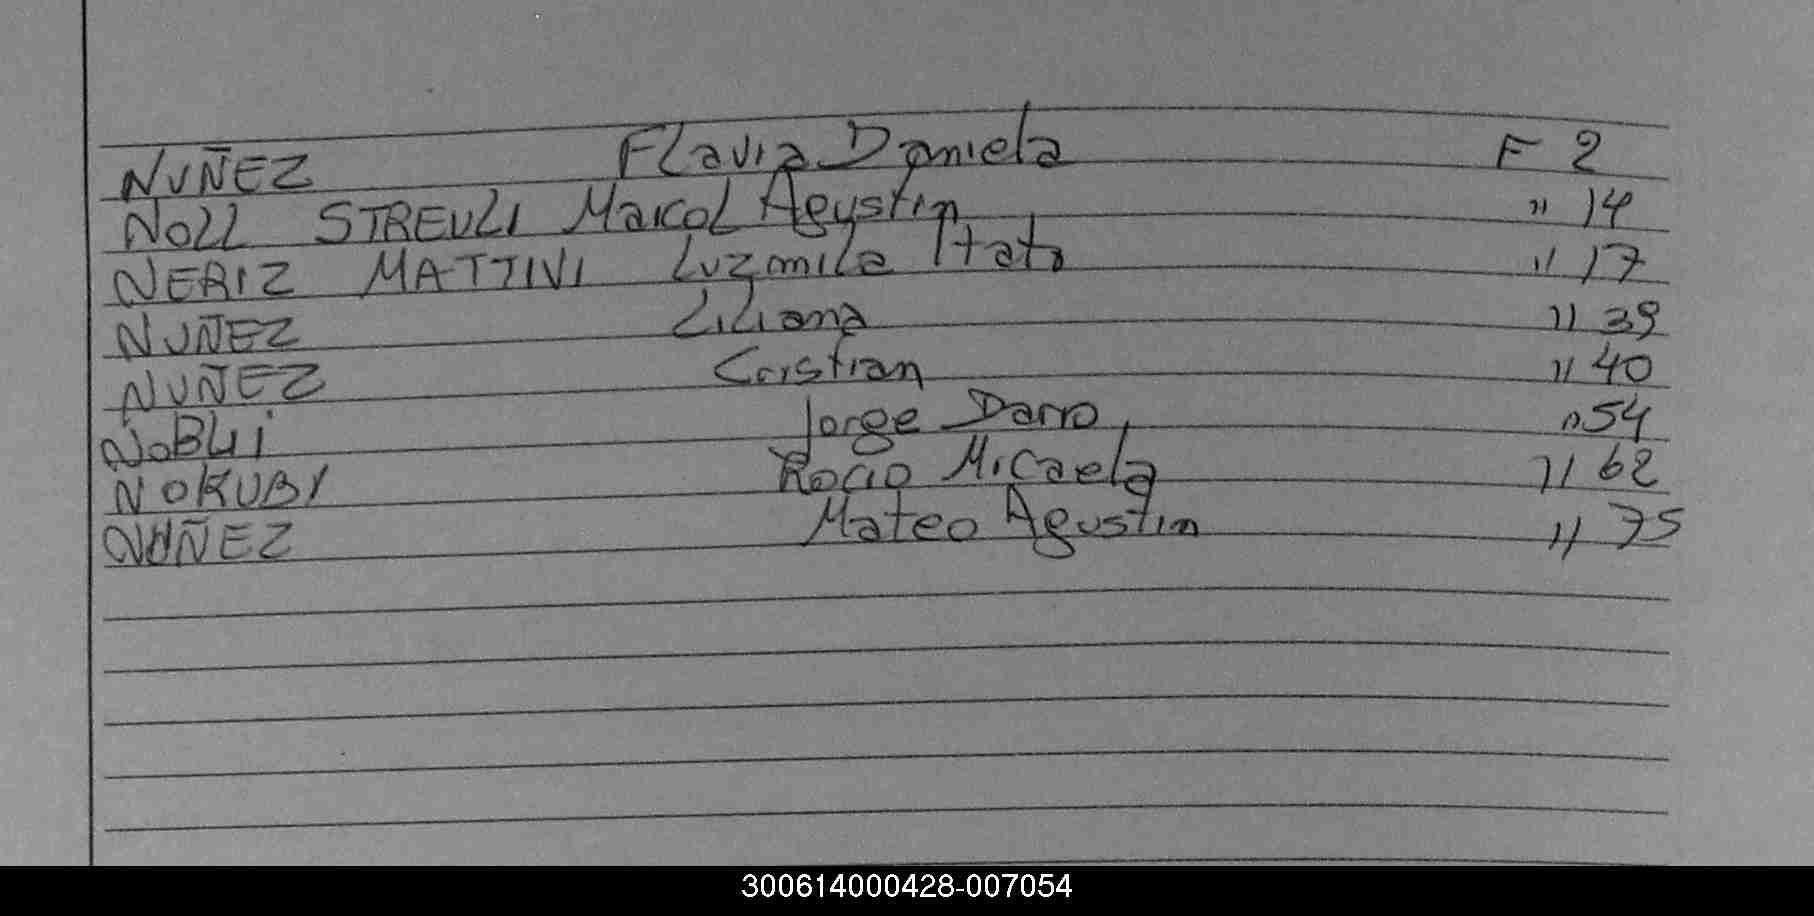 NUÑEZ Flavia Daniela F 2
NOLL STREULI Maicol Agustin " 14
NERIZ MATTIVI Luzmila Itati " 17
NUÑEZ Liliana " 39
NUÑEZ Cristian " 40
Jorge Dario " 54
NOKUBI Rocio Micaela " 62
NUÑEZ Mateo Agustin " 75
300614000428-007054